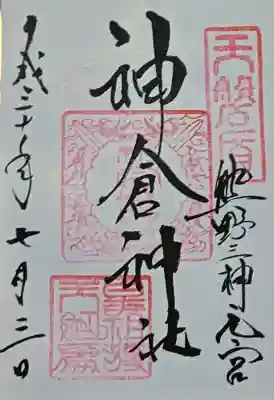 天磐盾
熊野三神元宮
神倉神社
平成三十年七月三日